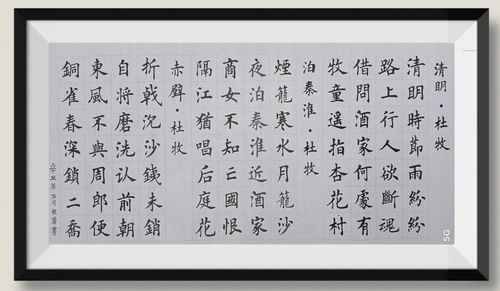 清明·杜牧
清明時節雨紛紛
路上行人欲斷魂
借問酒家何處有
牧童遥指杏花村
泊秦淮·杜牧
煙籠寒水月籠沙
夜泊秦淮近酒家
商女不知亡國恨
隔江猶唱后庭花
赤壁·杜牧
折戟沉沙銕未銷
自将磨洗认前朝
東風不與周郎便
銅雀春深鎖二喬
SG